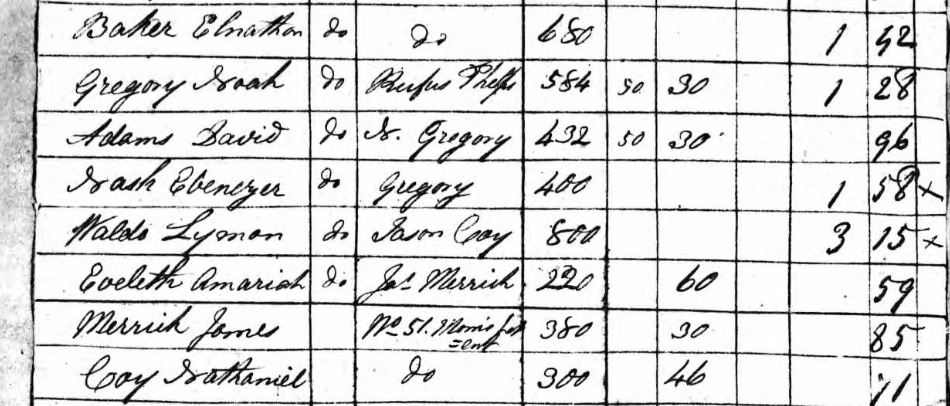 Baker Elnathan do do 680 1 42
Gregory Noah do Rufus Phelps 584 50 30 1 28
Adams David do N. Gregory 432 50 30 96
Nash Ebenezer do Gregory 400 1 58 x
Waldo Lyman do Jason Coy 800 3 15 x
Eveleth Amariah do Jas Merrick 220 60 59
Merrick James No 51. 380 30 85
Coy Nathaniel do 300 46 71